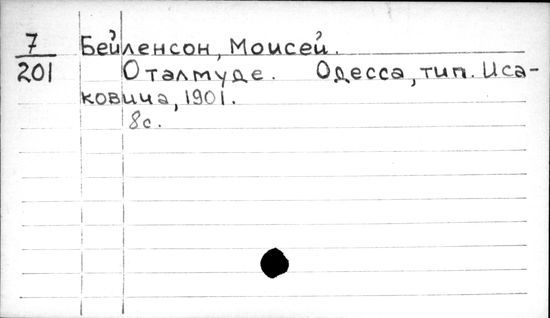 7 Бейленсон, Моисей.
201 О талмуде. Одесса, тип. Иса-
ковича, 1901.
8с.